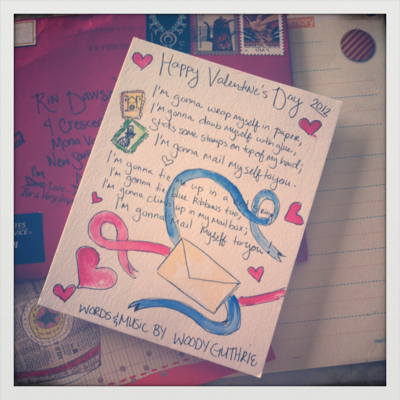 Happy Valentine's Day 2012
I'm gonna wrap myself in paper,
I'm gonna daub myself with glue,
Stick some stamps on top of my head;
I'm gonna mail myself to you.
I'm gonna tie me up in a red string
I'm gonna tie blue Ribbons too,
I'm gonna climb up in my mailbox;
I'm gonna Mail Myself to you
WORDS & MUSIC BY WOODY GUTHRIE
Rin Dawson
4 Crescent
Mona V
New Sou
I'm